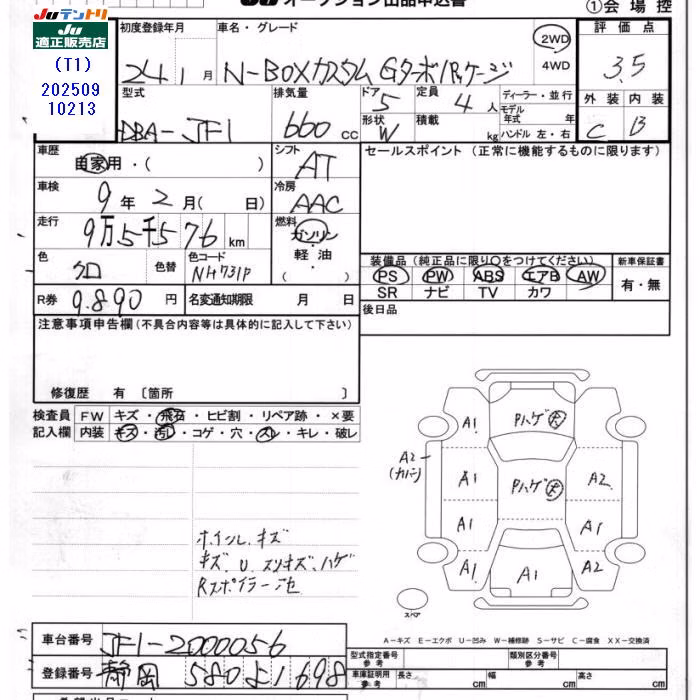 JUテントリ
JU オークション出品申込書
①会場控
JU
適正販売店
(T1)
202509
10213
初度登録年月
車名・グレード
評価点
24 1 月
N-BOXカスタム Gターボパッケージ
2WD
4WD
3.5
型式
排気量
ドア 5
定員 4 人
ディーラー・並行
外装 内装
DBA-JF1
660 cc
形状 W
積載 kg
モデル年式 年
ハンドル 左・右
C B
車歴
自家用・( )
シフト
AT
セールスポイント (正常に機能するものに限ります)
車検
9 年 2 月( 日)
冷房
AAC
走行
9万5千576 km
燃料
ガソリン
軽油
( ・ )
色
クロ
色替
色コード
NH731P
装備品 (純正品に限り○をつけてください)
新車保証書
PS PW ABS エアB AW
SR ナビ TV カワ
有・無
R券 9.890 円
名変通知期限 月 日
後日品
注意事項申告欄 (不具合内容等は具体的に記入して下さい)
修復歴 有 〔箇所 〕
検査員
記入欄
FW キズ・飛石・ヒビ割・リペア跡・×要
内装 キズ・汚れ・コゲ・穴・スレ・キレ・破レ
A1
Pハゲ 大
A2
(カバー)
A1
Pハゲ 大
A2
A1
A1
A1
A1
A2
スペア
ホイル.キズ
キズ.U.スリキズ.ハゲ
Rスポイラー
A-キズ E-エクボ U-凹み W-補修跡 S-サビ C-腐食 XX-交換済
車台番号 JF1-2000056
登録番号 静岡 580 よ 1698
型式指定番号
参考
類別区分番号
参考
車庫証明用
参考
長さ cm
幅 cm
高さ cm